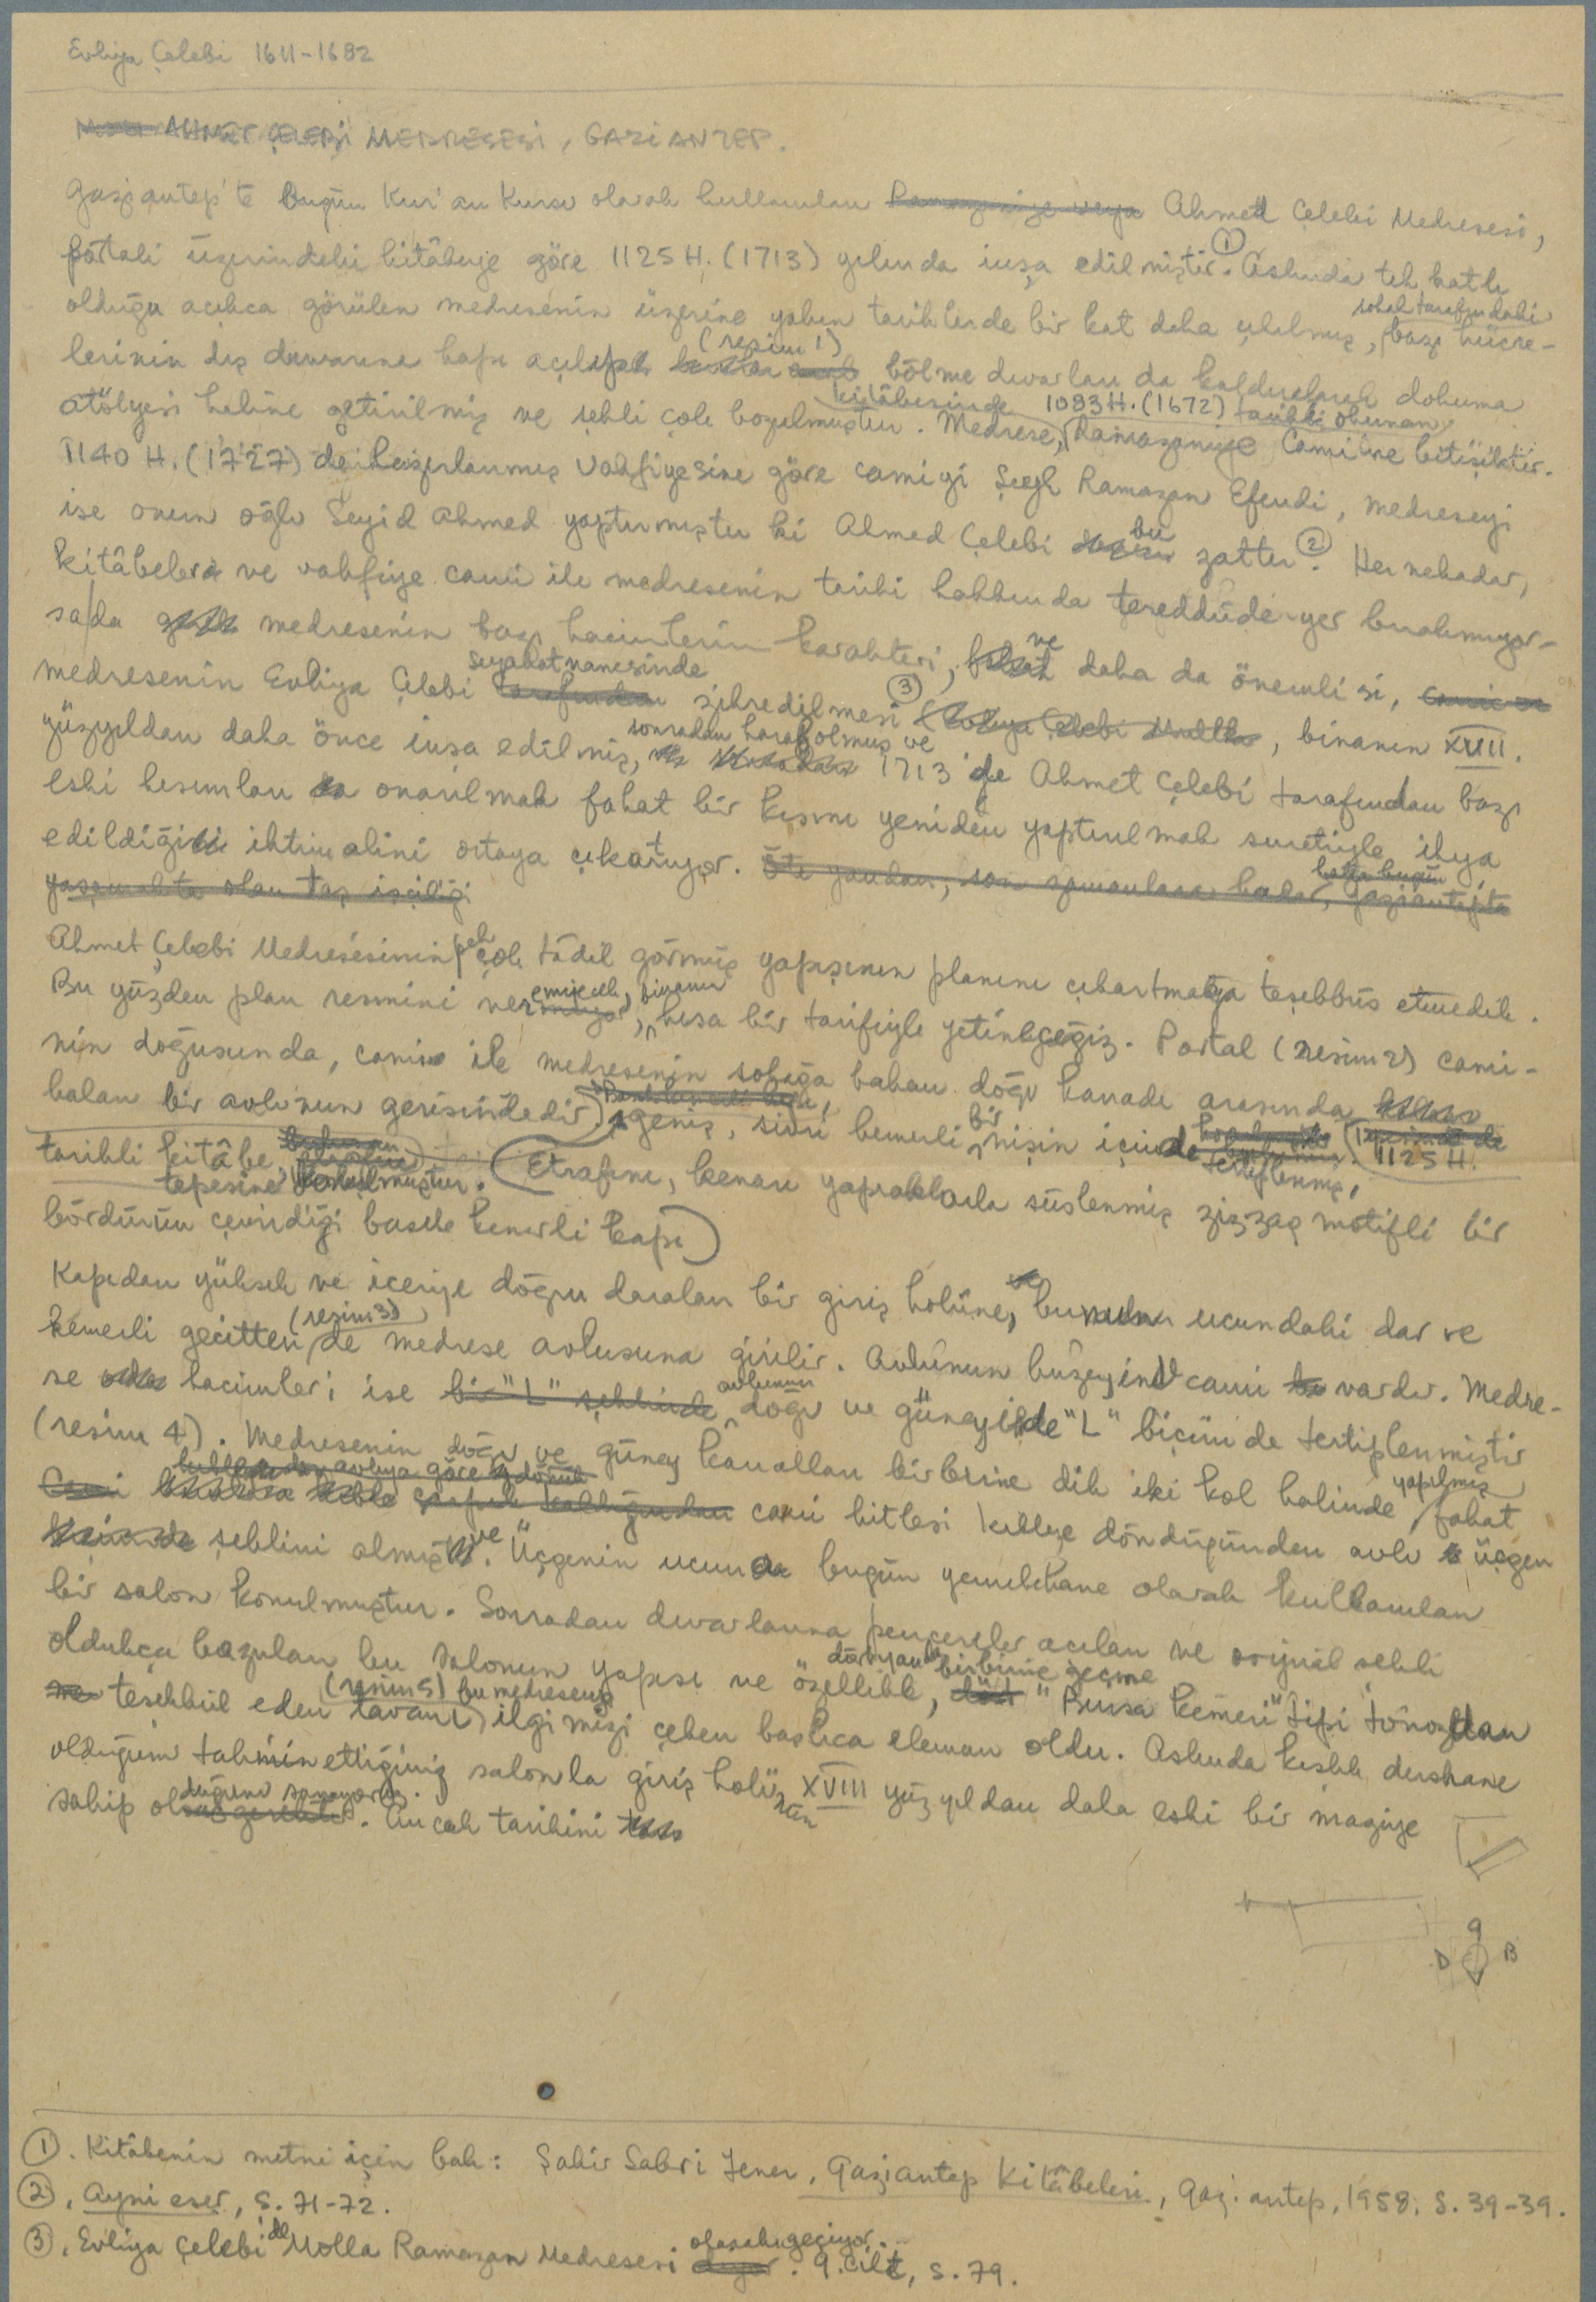 Evliya Çelebi 1611-1682
AHMET ÇELEBİ MEDRESESİ, GAZİANTEP.
Gaziantep'te Bugün Kur'an Kursu olarak kullanılan Ramazaniye veya Ahmed Çelebi Medresesi,
portali üzerindeki kitâbeye göre 1125 H. (1713) yılında inşa edilmiştir. ① Aslında tek katlı
olduğu açıkca görülen medresenin üzerine yakın tarihlerde bir kat daha çıkılmış, sokak tarafındaki bazı hücre-
lerinin dış duvarına kapı açılıp (resim 1) bölme duvarları da kaldırılarak dokuma
atölyesi haline getirilmiş ve şekli çok bozulmuştur. Medrese, kitâbesinde 1083 H. (1672) tarihi okunan Ramazaniye Camiine bitişiktir.
1140 H. (1727) de hazırlanmış Vakfiyesine göre camiyi Şeyh Ramazan Efendi, medreseyi
ise onun oğlu Seyid Ahmed yaptırmıştır ki Ahmed Çelebi bu zattır ②. Her nekadar,
kitâbeler ve vakfiye cami ile medresenin tarihi hakkında tereddüde yer bırakmıyor-
sa da medresenin bazı hacimlerin karakteri, ve daha da önemlisi,
medresenin Evliya Çelebi Seyahatnamesinde zikredilmesi ③, binanın XVIII.
yüzyıldan daha önce inşa edilmiş, sonradan harap olmuş ve 1713'de Ahmet Çelebi tarafından bazı
eski kısımları onarılmak fakat bir kısmı yeniden yaptırılmak suretiyle ihya
edildiği ihtimalini ortaya çıkartıyor. Öte yandan, son zamanlara kadar, hatta bugün Gaziantepte
yaşamakta olan taş işçiliği
Ahmet Çelebi Medresesinin pek çok tâdil görmüş yapısının planını çıkartmağa teşebbüs etmedik.
Bu yüzden plan resmini vermiyecek, binanın kısa bir tarifiyle yetineceğiz. Portal (resim 2) cami-
nin doğusunda, cami ile medresenin sokağa bakan doğu kanadı arasında
kalan bir avlunun gerisindedir. geniş, sivri kemerli bir nişin içinde tertiplenmiş, 1125 H.
tarihli kitâbe, tepesine konulmuştur. (Etrafını, kenarı yapraklarla süslenmiş zigzag motifli bir
bördürün çevirdiği basık kemerli kapı)
Kapıdan yüksek ve içeriye doğru daralan bir giriş holüne, bunun ucundaki dar ve
kemerli geçitten (resim 3) de medrese avlusuna girilir. Avlunun kuzeyinde cami vardır. Medre-
se hacimleri ise bir "L" şeklinde avlunun doğu ve güneyinde "L" biçimide tertiplenmiştir
(resim 4). Medresenin doğu ve güney kanatları birbirine dik iki kol halinde yapılmış, fakat
cami kitlesi kıbleye döndüğünden avlu üçgen
şeklini almış ve Üçgenin ucuna bugün yemekhane olarak kullanılan
bir salon konulmuştur. Sonradan duvarlarına pencereler açılan ve orijinal şekli
oldukça bozulan bu salonun yapısı ve özellikle, dört yandan birbirine geçme "Bursa kemeri" tipi tonozdan
teşekkül eden tavanı (resim 5) bu medresenin ilgimizi çeken başlıca elemanı oldu. Aslında kışlık dershane
olduğunu tahmin ettiğimiz salonla giriş holünün XVIII yüzyıldan daha eski bir maziye
sahip olduğunu sanıyoruz. Ancak tarihini
G
D B
①. Kitâbenin metni için bak: Şakir Sabri Yener, Gaziantep Kitâbeleri, Gaziantep, 1958, S. 39-39.
②. Ayni eser, S. 71-72.
③. Evliya Çelebi'de Molla Ramazan Medresesi olarak geçiyor. 9. Cilt, S. 79.